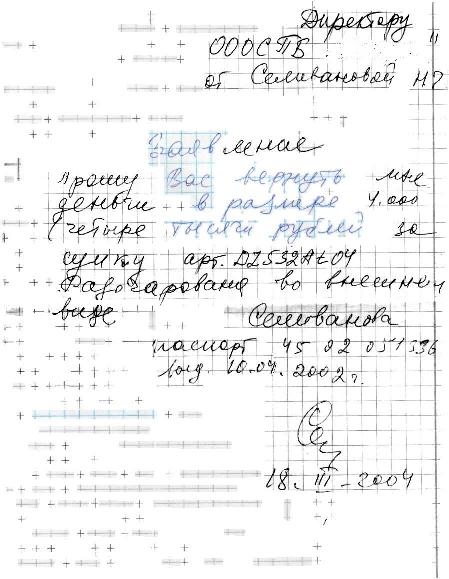 Директору
ООО СПВ "
от Селивановой Н?
Заявление
Прошу Вас вернуть мне
деньги в размере 4.000
(четыре тысячи рублей за
сумку арт. DZ532A204
Разочарована во внешнем
виде Селиванова
паспорт 45 02 051336
выд. 10.04.2002 г.
18. III - 2004